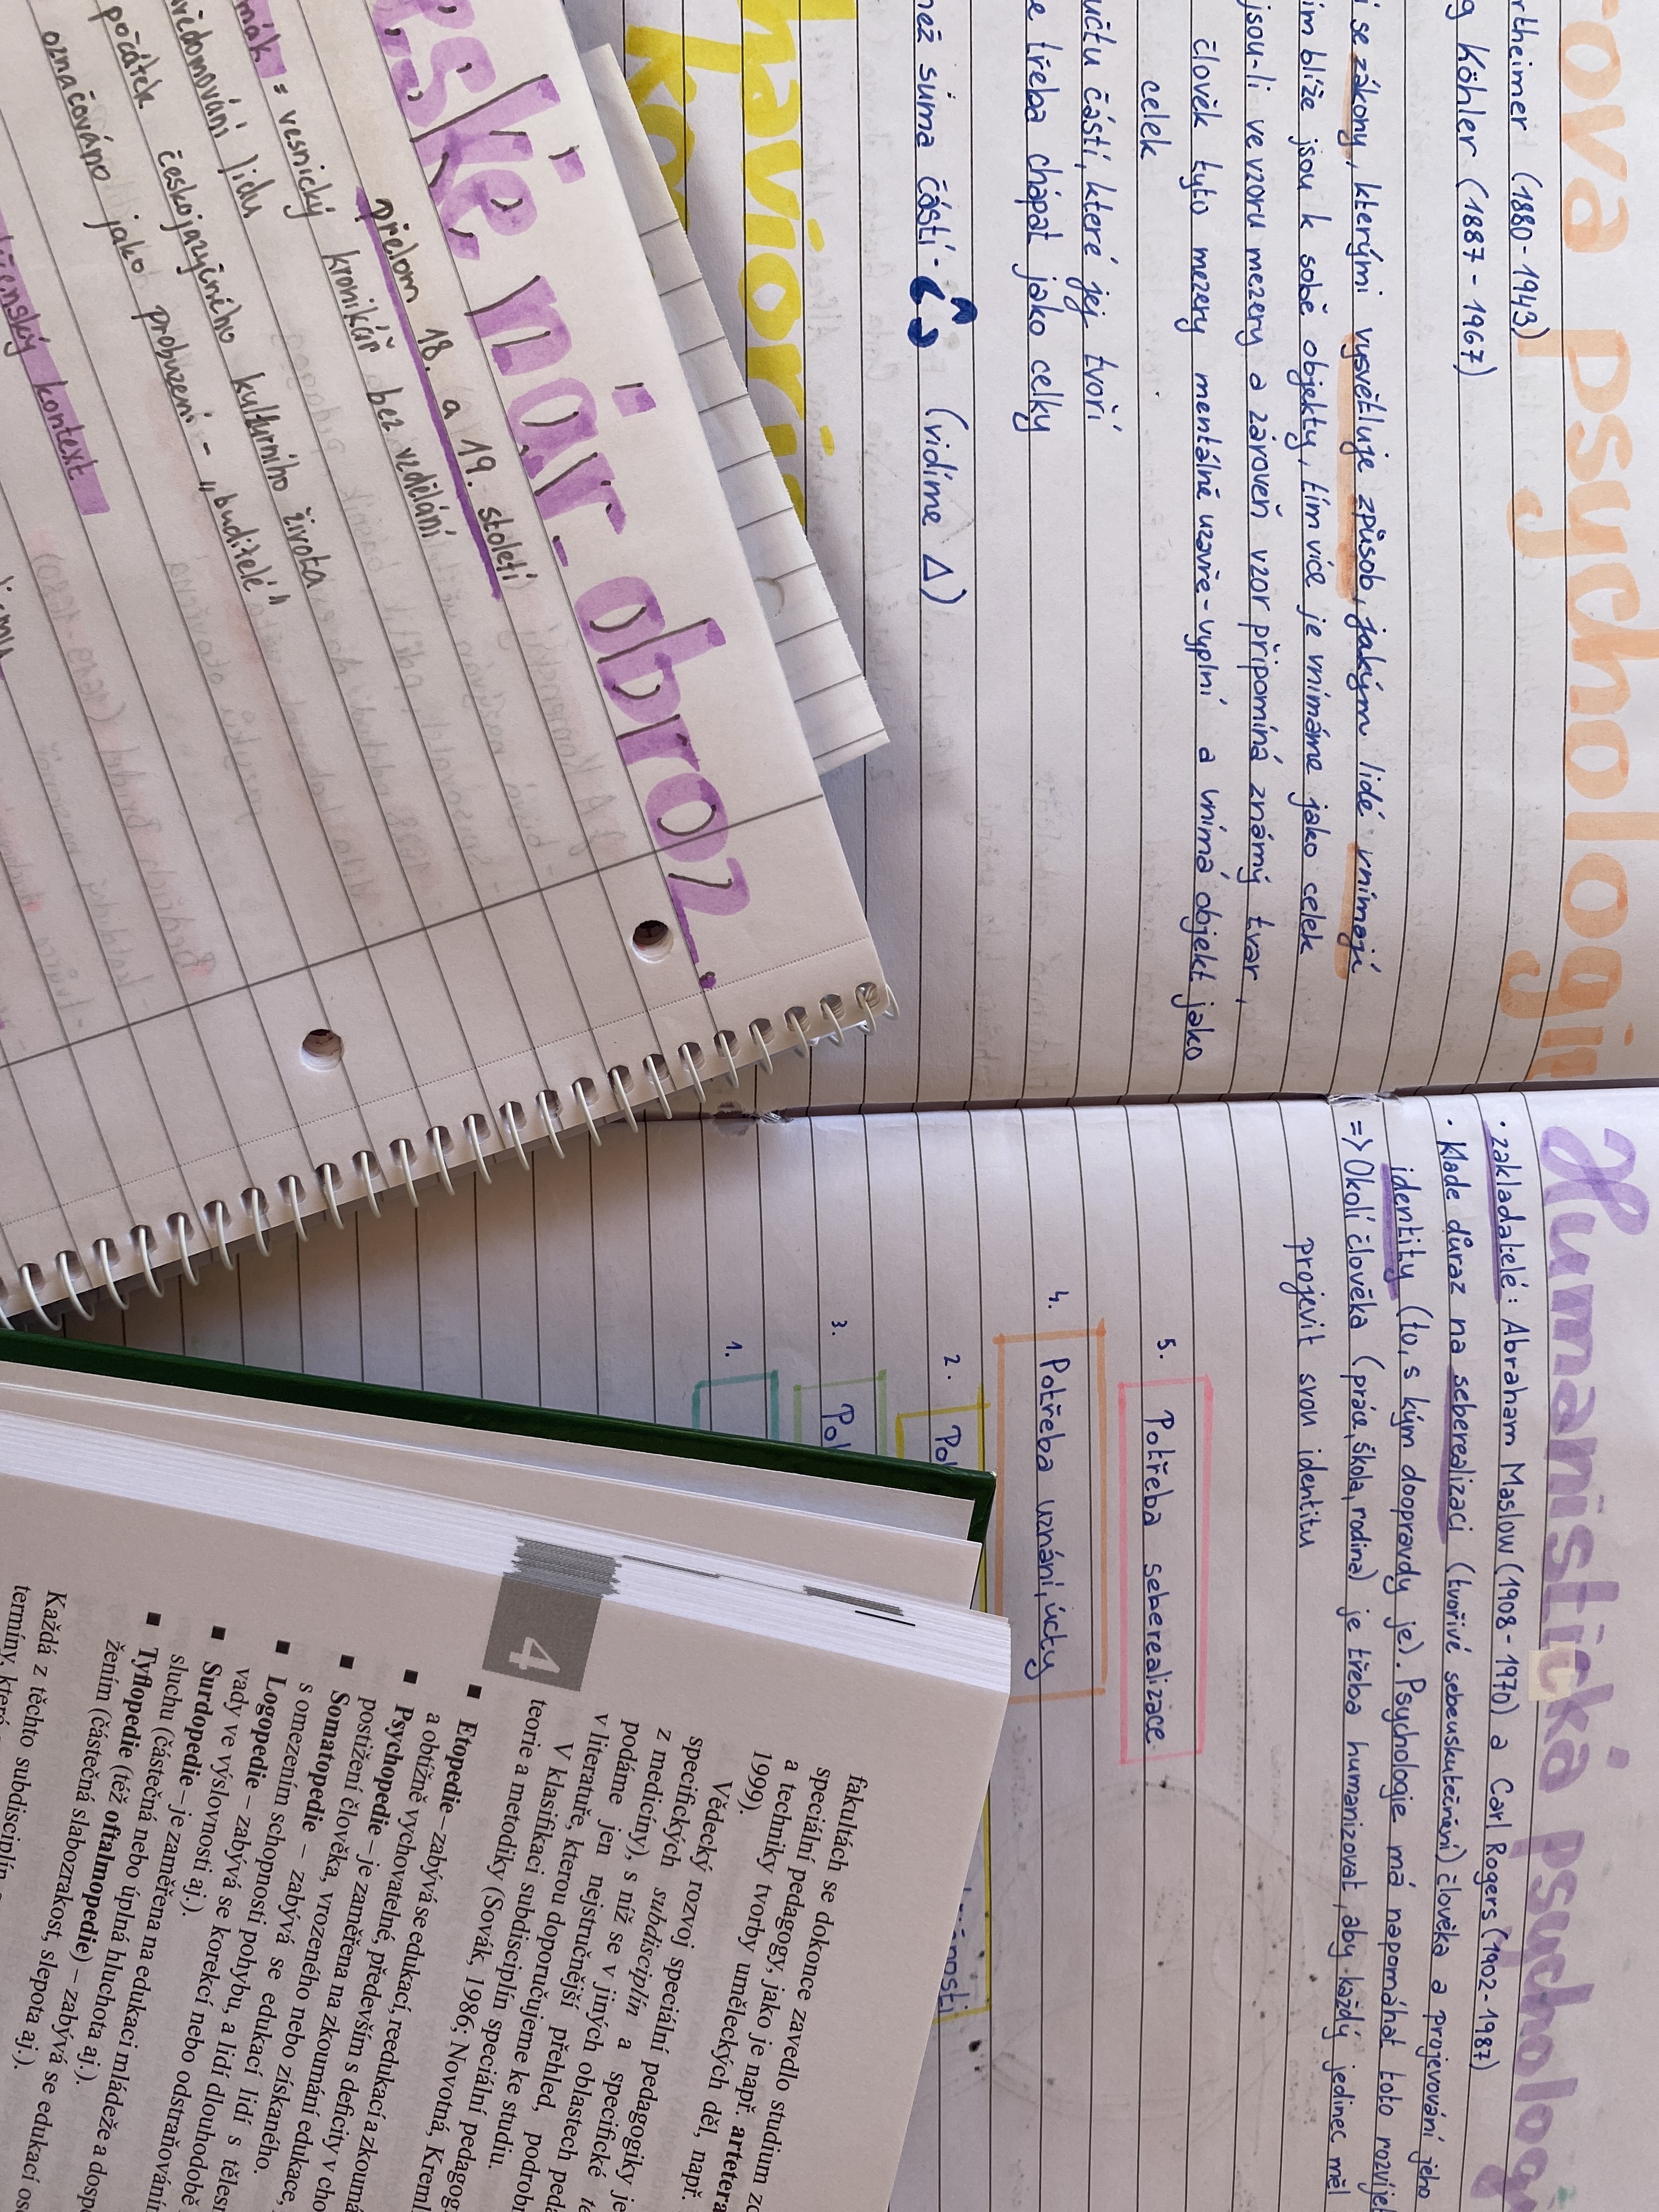 ova psychologie
rtheimer (1880-1943)
g Köhler (1887-1967)
i se zákony, kterými vysvětluje způsob, jakým lidé vnímají
ím blíže jsou k sobě objekty, tím více je vnímáme jako celek
jsou-li ve vzoru mezery a zároveň vzor připomíná známý tvar,
člověk tyto mezery mentálně uzavře-vyplní a vnímá objekt jako
celek
učtu částí, které jej tvoří
e třeba chápat jako celky
než suma částí - (vidíme Δ)
Humanistická psycholog
· zakladatelé: Abraham Maslow (1908-1970) a Carl Rogers (1902-1987)
· klade důraz na seberealizaci (tvořivé sebeuskutečnění) člověka a projevování jeho
identity (to, s kým doopravdy je). Psychologie má napomáhat toto rozvíjet
=> Okolí člověka (práce, škola, rodina) je třeba humanizovat, aby každý jedinec měl
projevit svou identitu
5. Potřeba seberealizace
4. Potřeba uznání, úcty
2. Po
3. Po
1.
ské nár. obroz.
přelom 18. a 19. století
mák = vesnický kronikář bez vzdělání
vědomování lidu
počátek českojazyčného kulturního života
označováno jako probuzení - „buditelé"
kontext
4
fakultách se dokonce zavedlo studium
speciální pedagogy, jako je např. artetera
a techniky tvorby uměleckých děl, např.
1999).
Vědecký rozvoj speciální pedagogiky je
specifických subdisciplín a specifické
z medicíny), s níž se v jiných oblastech
podáme jen nejstručnější přehled, podrobn
v literatuře, kterou doporučujeme ke studiu.
V klasifikaci subdisciplín speciální pedagog
teorie a metodiky (Sovák, 1986; Novotná, Kreml
■ Etopedie – zabývá se edukací, reedukací a zkoumá
a obtížně vychovatelné, především s deficity v cho
■ Psychopedie – je zaměřena na zkoumání edukace,
postižení člověka, vrozeného nebo získaného.
■ Somatopedie – zabývá se edukací lidí s těles
s omezením schopnosti pohybu, a lidí dlouhodobě
■ Logopedie – zabývá se korekcí nebo odstraňování
vady ve výslovnosti aj.).
■ Surdopedie – je zaměřena na edukaci mládeže a dosp
sluchu (částečná nebo úplná hluchota aj.).
■ Tyflopedie (též oftalmopedie) – zabývá se edukací os
žením (částečná slabozrakost, slepota aj.).
Každá z těchto subdisciplín
termíny, které